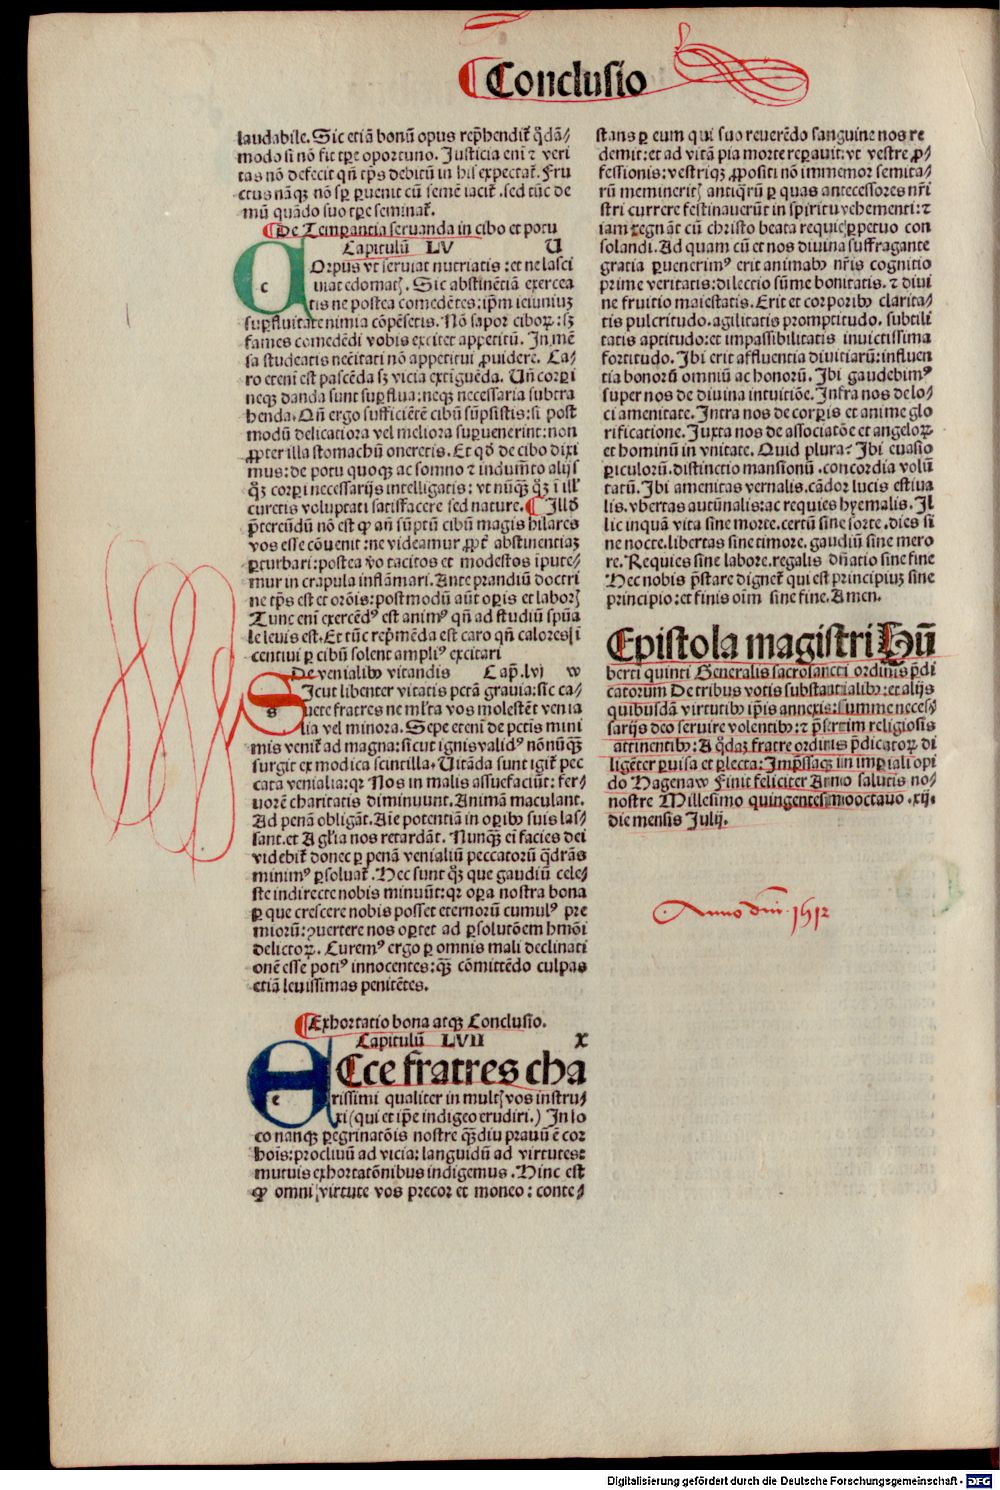 Conclusio
laudabile. Sic etiã bonũ opus rep̃hendit̃ q̃dã⸗
modo si nõ fit tp̃e oportuno. Justicia eni ꝛ veri
tas nõ defecit qñ tp̃s debitũ in his expectat̃. Fru
ctus nãqꝫ nõ sp̃ ꝑuenit cũ semẽ iacit̃. sed tũc de
mũ quãdo suo tp̃e seminat̃.
De Temꝑantia seruanda in cibo et potu
Capitulũ LV V
c Orpus vt seruiat nutriatis : et ne lasci
uiat edomatꝭ. Sic abstinẽtia exercea
tis ne postea comedẽtes: ip̃m ieiuniuꝫ
suꝑfluitate nimia cõpẽsetis. Nõ sapor ciboꝝ: sꝫ
fames comedẽdi vobis excitet appetitũ. In mẽ
sa studeatis necẽitati nõ appetitui ꝓuidere. Ca⸗
ro etenĩ est pascẽda sꝫ vicia extĩguẽda. Uñ corꝑi
neqꝫ danda sunt suꝑflua: neqꝫ necessaria subtra
henda. Qñ ergo sufficiẽtẽ cibũ sũpsistis: si post
modũ delicatiora vel meliora suꝑuenerint: non
ꝓpter illa stomachũ oneretis. Et qõ de cibo dixi
mus: de potu quoqꝫ ac somno ꝛ indumẽto alijs
qꝫ corꝑi necessarijs intelligatis: vt nũqꝫ̃ qꝫ̃ i ill'
curetis voluptati satisfacere sed nature. Illd̃
p̃tereũdũ nõ est ꝙ añ sũptũ cibũ magis hilares
vos esse cõuenit: ne videamur ꝓpt̃ abstinentiaꝫ
ꝑturbari: postea ṽo tacitos et modestos ĩpute⸗
mur in crapula inflãmari. Ante prandiũ doctri
ne tp̃s est et orõis: postmodũ aũt oꝑis et laborꝭ
Tunc eni exercẽdꝰ est animꝰ qñ ad studiũ spũa
le leuis est. Et tũc rep̃mẽda est caro qñ calores i
centiui ꝑ cibũ solent ampliꝰ excitari
De venialibꝰ vitandis Cap̃. lvi w
s Icut libenter vitatis petã grauia: sic ca⸗
uete fratres ne ml'ta vos molestẽt venia
lia vel minora. Sepe etenĩ de pctis mini
mis venit̃ ad magna: sicut ignis validꝰ nõnũqꝫ̃
surgit ex modica scintilla. Uitãda sunt igit̃ pec
cata venialia: qꝛ Nos in malis assuefaciũt: fer⸗
uorẽ charitatis diminuunt. Animã maculant.
Ad penã obligãt. Aie potentiã in oꝑibꝰ suis las⸗
sant. et A gl'ia nos retardãt. Nunqꝫ̃ ei facies dei
videbit̃ donec ꝑ penã venialiũ peccatorũ q̃drãs
minimꝰ ꝑsoluat̃. Hec sunt qꝫ̃ que gaudiũ cele⸗
ste indirecte nobis minuũt: qꝛ oꝑa nostra bona
ꝑ que crescere nobis posset eternorũ cumulꝰ pre
miorũ: ꝯuertere nos oꝑtet ad ꝑsolutõem hmõi
delictoꝝ. Curemꝰ ergo ꝑ omnis mali declinati
onẽ esse potiꝰ innocentes: qꝫ̃ cõmittẽdo culpas
etiã leuissimas penitẽtes.
Exhortatio bona atqꝫ Conclusio.
Capitulũ LVII x
e Ecce fratres cha
rissimi qualiter in multꝭ vos instru⸗
xi (qui et ip̃e indigeo erudiri.) In lo
co nanqꝫ ꝑegrinatõis nostre qꝫ̃diu prauũ ẽ cor
hoĩs: procliuũ ad vicia: languidũ ad virtutes:
mutuis exhortatõnibus indigemus. Hinc est
ꝙ omni virtute vos precor et moneo: conte⸗
stans ꝑ eum qui suo reuerẽdo sanguine nos re
demit: et ad vitã pia morte reꝑauit: vt vestre ꝓ⸗
fessionis: vestriqꝫ ꝓpositi nõ immemor semita⸗
rũ meminerit̃ antiq̃rũ ꝑ quas antecessores nr̃i
stri currere festinauerũt in spiritu vehementi: ꝛ
iam regnãt cũ christo beata requie ꝑpetuo con
solandi. Ad quam cũ et nos diuina suffragante
gratia ꝑuenerimꝰ erit animabꝰ nr̃is cognitio
prime veritatis: dilectio sũme bonitatis. ꝛ diui
ne fruitio maiestatis. Erit et corporibꝰ clarita⸗
tis pulcritudo. agilitatis promptitudo. subtili
tatis aptitudo: et impassibilitatis inuictissima
fortitudo. Ibi erit affluentia diuitiarũ: influen
tia bonorũ omniũ ac honorũ. Ibi gaudebimꝰ
super nos de diuina intuitiõe. Infra nos de lo⸗
ci amenitate. Intra nos de corꝑis et anime glo
rificatione. Juxta nos de associatõe et angeloꝝ
et hominũ in vnitate. Quid plura? Ibi euasio
ꝑiculorũ. distinctio mansionũ. concordia volũ
tatũ. Ibi amenitas vernalis. cãdor lucis estiua
lis. vbertas autũnalis: ac requies hyemalis. Il
lic inquã vita sine morte. certũ sine sorte. dies si
ne nocte. libertas sine timore. gaudiũ sine mero
re. Requies sine labore. regalis dñatio sine fine
Hec nobis p̃stare dignet̃ qui est principiuꝫ sine
principio: et finis oĩm sine fine. Amen.
Epistola magistri Hũ
berti quinti Generalis sacrosancti ordinis p̃di
catorum De tribus votis substantialibꝰ: et alijs
quibusdã virtutibꝰ ip̃is annexis: summe neces⸗
sarijs deo seruire volentibꝰ: ꝛ p̃sertim religiosis
attinentibꝰ: A q̃daꝫ fratre ordinis p̃dicatoꝝ di
ligẽter ꝑuisa et ꝑlecta: Imp̃ssaqꝫ in imꝑiali opi
do Hagenaw Finit feliciter Anno salutis no⸗
nostre Millesimo quingentesimooctauo. xij.
die mensis Julij.
Anno dñi 1512
Digitalisierung gefördert durch die Deutsche Forschungsgemeinschaft - DFG